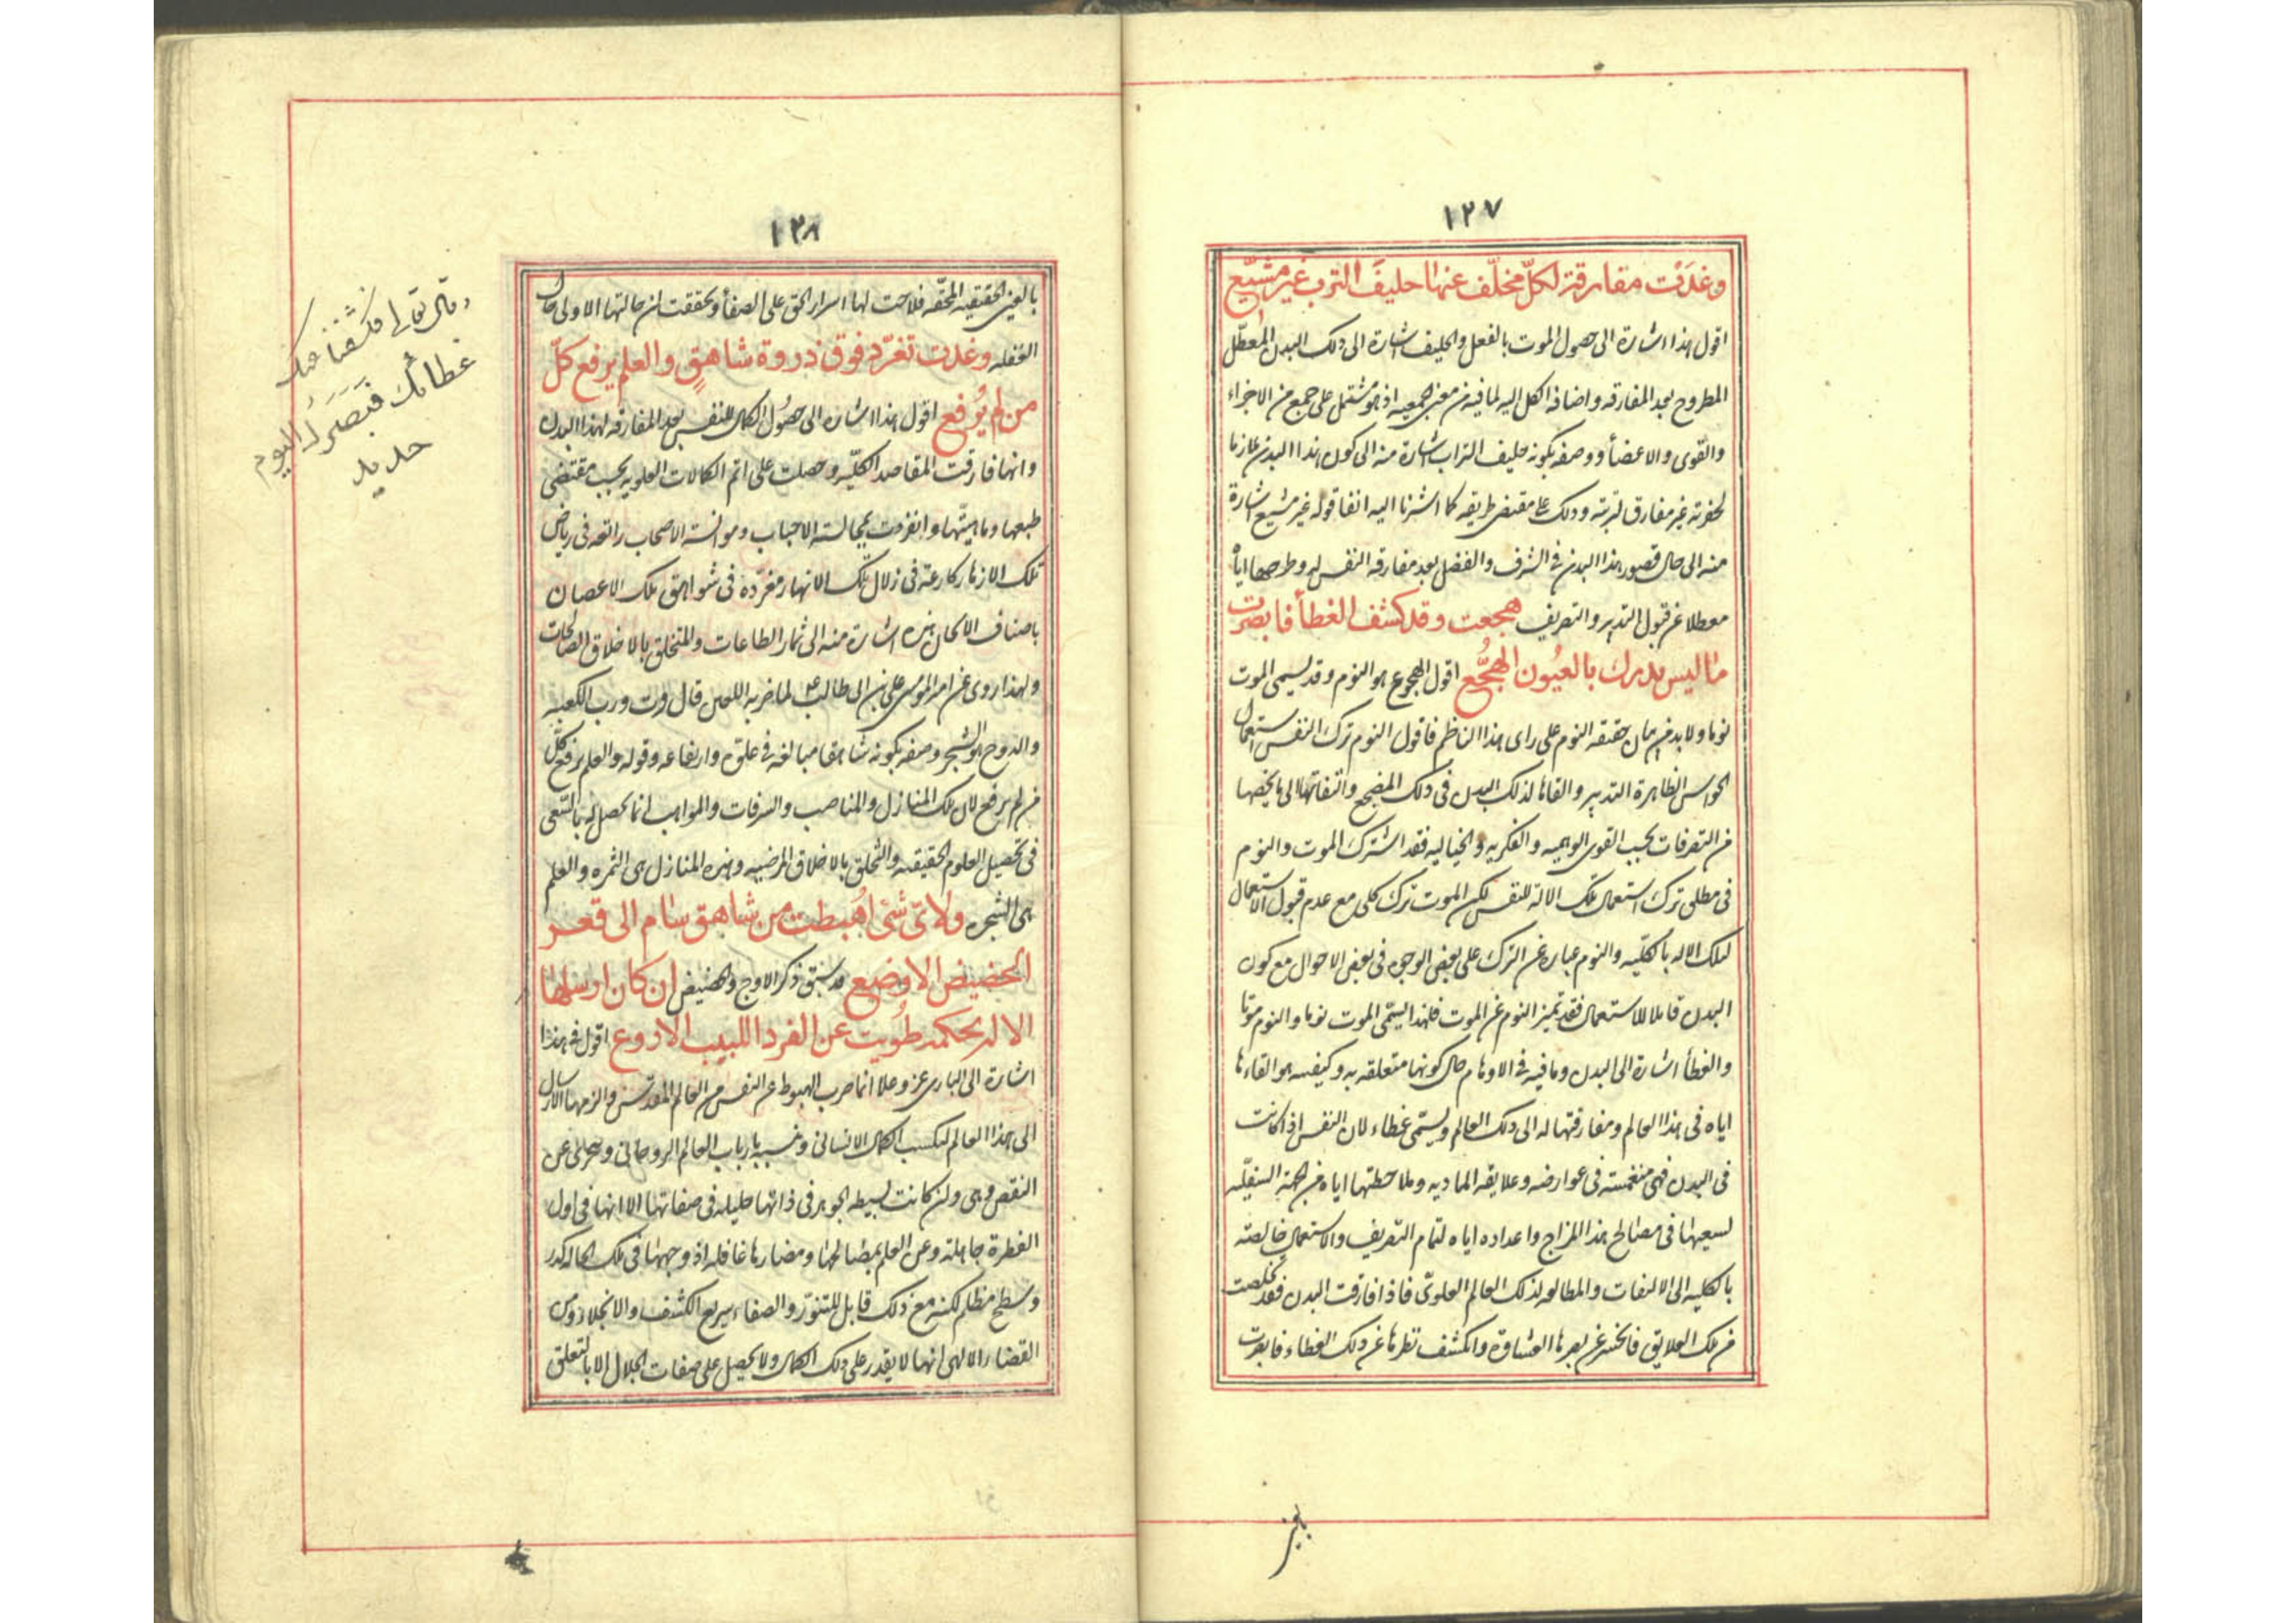 ١٢٧
وغدت مفارقة لكلّ مخلّف عنها حليف الترب غير مشيّع
اقول هذا اشارة الى حصول الموت بالفعل والحليف اشارة الى ذلك البدن المعطّل
المطروح بعد المفارقه واضافة الكل اليه لما فيه من معنى الجمعيه اذ هو مشتمل على جمع من الاجزاء
والقوى والاعضأ ووصفه بكونه حليف التراب اشارة منه الى كون هذا البدن ملازما
لحفرته غير مفارق لتربته وذلك على مقتضى طريقه كما اشرنا اليه انفا قوله غير مشيع اشارة
منه الى حال قصور هذا البدن فى الشرف والفضل بعد مفارقه النفس له وطرحها اياه
معطلا عن قبول التدبير والتصريف هجعت وقد كشف الغطأ فابصرت
ما ليس يدرك بالعيُون الهجُّع اقول الهجوع هو النوم وقد يسمى الموت
نوما ولا بد من بيان حقيقه النوم على راى هذا الناظم فاقول النوم ترك النفس استعمال
الحواس الظاهرة التدبير والقاها لذلك البدن فى ذلك المضجع والتفاتها الى ما يخصها
من التصرفات بحسب القوى الوهميه والفكريه والخياليه فقد اشترك الموت والنوم
فى مطلق ترك استعمال تلك الالة للنفس لكن الموت ترك كلى مع عدم قبول الاستعمال
لتلك الاله بالكليّه والنوم عباره عن الترك على بعض الوجوه فى بعض الاحوال مع كون
البدن قابلا للاستعمال فقد تميز النوم عن الموت فلهذا يسمّى الموت نوما والنوم موتا
والغطأ اشارة الى البدن وما فيه من الاوهام حال كونها متعلقه به وكيفيه هو القاءها
اياه فى هذا العالم ومفارقتها له الى ذلك العالم ويسمّى غطاء لان النفس اذا كانت
فى البدن فهى منغمسة فى عوارضه وعلايقه الماديه وملاحظتها اياه من الجهة السفليّه
لسعيها فى مصالح هذا المزاج واعداده اياه لتمام التصريف والاستعمال خالصته
بالكليه الى الالتفات والمطالعه لذلك العالم العلوىّ فاذا فارقت البدن فقد تخلصت
من تلك العلايق فانحسر عن بصرها الغشاوة وانكشف نظرها عن ذلك الغطاء فابصرت
بالعين
١٢٨
بالعين الحقيقيه المحقّه فلاحت لها اسرار الحق على الصفأ وتحققت ان حالتها الاولى حال
الغفله وغدت تغرّد فوق ذروة شاهقٍ والعلم يرفع كلّ
من لم يُرفع اقول هذا اشاره الى حصُول الكمال للنفس بعد المفارقه لهذا البدن
وانها فارقت المقاصد الكليّه وحصلت على اتم الكمالات العلويه بحسب مقتضى
طبعها وماهيتّها وانفردت بمجالسة الاحباب وموانسة الاصحاب راتعه فى رياض
تلك الازهار كارعة فى زلال تلك الانهار مغرّده فى شواهق تلك الاغصان
باصناف الالحان هذه اشارة منه الى ثمار الطاعات والتخلق بالاخلاق الصالحات
ولهذا روى عن امير المومنين على بن ابى طالب ع لما ضربه اللعين قال فزت ورب الكعبه
والدوح هو الشجر وصفه بكونه شاهقا مبالغه فى علوّه وارتفاعه وقوله والعلم يرفع كلّ
من لم يرفع لان تلك المنازل والمناصب والشرفات والمواهب انما تحصل له بالسّعى
فى تحصيل العلوم الحقيقيه والتخلق بالاخلاق المرضيه وهذه المنازل هى الثمره والعلم
هى الشجره ولاىّ شئ اهُبطت من شاهق سام الى قعر
الحضيض الاوضع قد سبق ذكر الاوج والحضيض ان كان ارسلها
الاله لحكمة طُويت عن الفرد اللبيب الاروع اقول فى هذا
اشارة الى البارى عز وعلا انما ضرب الهبوط على النفس من العالم المقدّس والزمها الارسال
الى هذا العالم لتكسب الكمال الانسانى وتنسب بارباب العالم الروحانى وتتعرى عن
النقص وهى وان كانت بسيطه الجوهر فى ذاتها جليله فى صفاتها الا انها فى اول
الفطرة جاهلة وعن العلم بمصالحها ومضارها غافله اذ وجهها فى تلك الحاله كدر
وسطح مظلم لكنه مع ذلك قابل للتنوّر والصفاء سريع الكشف والانجلا ومن
القضاء الالهى انها لا يقدر على ذلك الكمال ولا يحصل على صفات الجلال الا بالتعلق
وقال تعالى فكشفنا عنك
غطائك فبَصَرُك اليوم
حديد